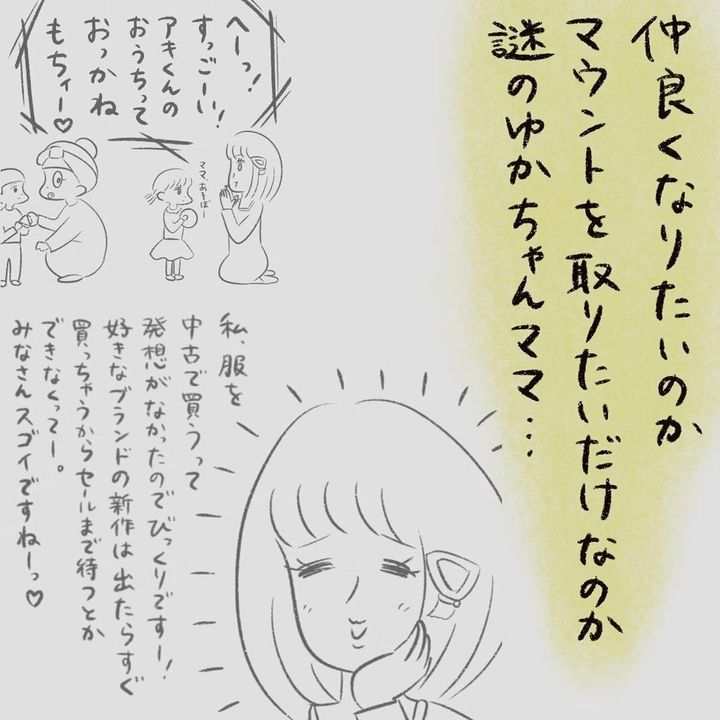 仲良くなりたいのか
マウントを取りたいだけなのか
謎のゆかちゃんママ…
へーっ!
すっごーい!
アキくんの
おうちって
おっかね
もちィー♡
ママ、あそぼー
私、服を
中古で買うって
発想がなかったのでびっくりですー!
好きなブランドの新作は出たらすぐ
買っちゃうからセールまで待つとか
できなくってー。
みなさんスゴイですねーっ♡